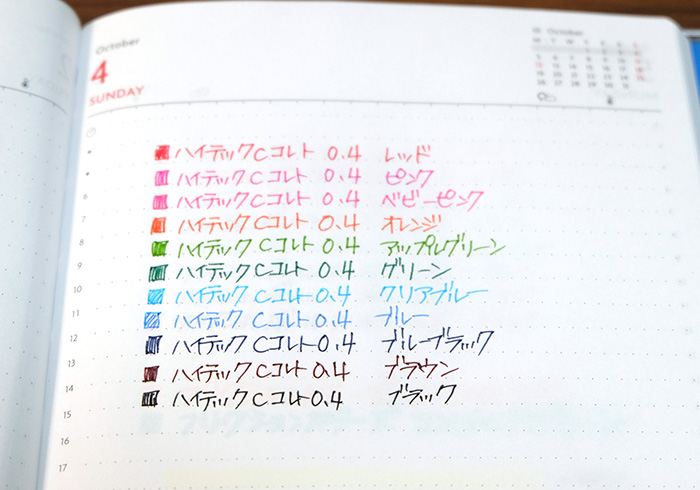 October
4
SUNDAY
10 October
M T W T F S S
ハイテックCコレト 0.4 レッド
ハイテックCコレト 0.4 ピンク
ハイテックCコレト 0.4 ベビーピンク
7 ハイテックCコレト 0.4 オレンジ
8 ハイテックCコレト 0.4 アップルグリーン
9 ハイテックCコレト 0.4 グリーン
10 ハイテックCコレト 0.4 クリアブルー
11 ハイテックCコレト 0.4 ブルー
12 ハイテックCコレト 0.4 ブルーブラック
13 ハイテックCコレト 0.4 ブラウン
14 ハイテックCコレト 0.4 ブラック
15
16
17